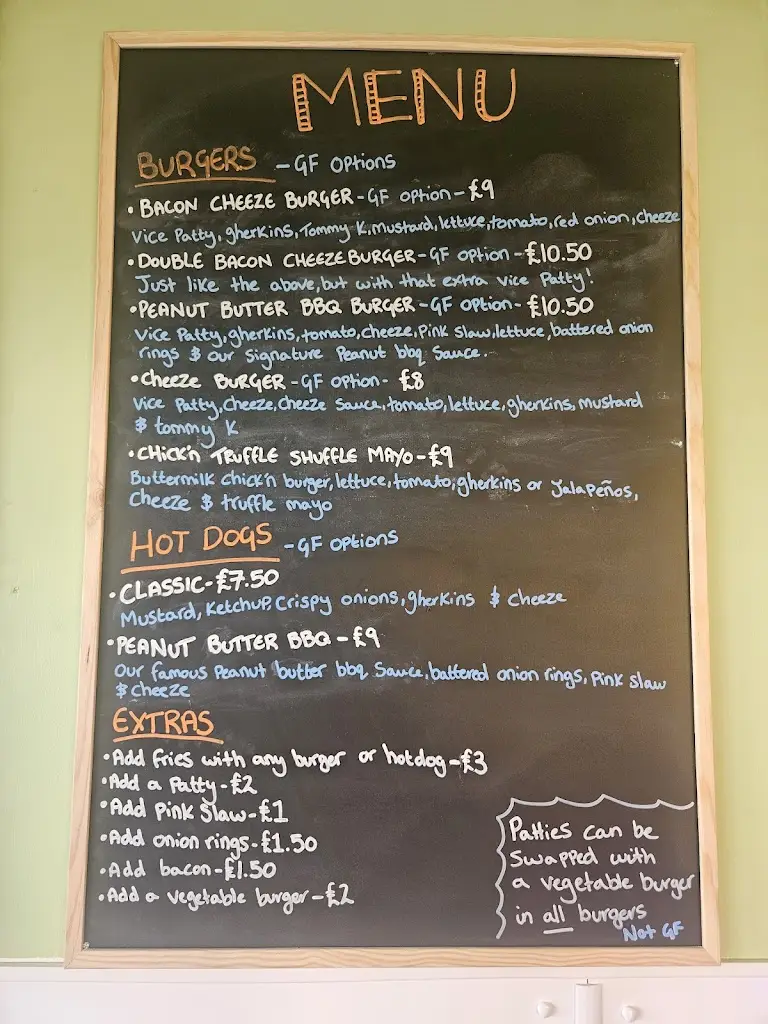 MENU
BURGERS - GF Options
• BACON CHEEZE BURGER - GF option - £9
Vice Patty, gherkins, Tommy K, mustard, lettuce, tomato, red onion, cheeze
• DOUBLE BACON CHEEZEBURGER - GF option - £10.50
Just like the above, but with that extra vice Patty!
• PEANUT BUTTER BBQ BURGER - GF option - £10.50
Vice Patty, gherkins, tomato, cheeze, Pink Slaw, lettuce, battered onion
rings & our Signature Peanut bbq Sauce.
• Cheeze BURGER - GF option - £8
Vice Patty, Cheeze, Cheeze Sauce, tomato, lettuce, gherkins, mustard
& tommy K
• CHICK'N TRUFFLE SHUFFLE MAYO - £9
Buttermilk Chick'n burger, lettuce, tomato, gherkins or Jalapeños,
Cheeze & truffle mayo
HOT DOGS - GF options
• CLASSIC - £7.50
Mustard, Ketchup, Crispy onions, gherkins & Cheeze
• PEANUT BUTTER BBQ - £9
Our famous Peanut butter bbq Sauce, battered onion rings, Pink Slaw
& Cheeze
EXTRAS
• Add fries with any burger or hotdog - £3
• Add a Patty - £2
• Add Pink Slaw - £1
• Add onion rings - £1.50
• Add bacon - £1.50
• Add a vegetable burger - £2
Patties can be
Swapped with
a vegetable burger
in all burgers
Not GF